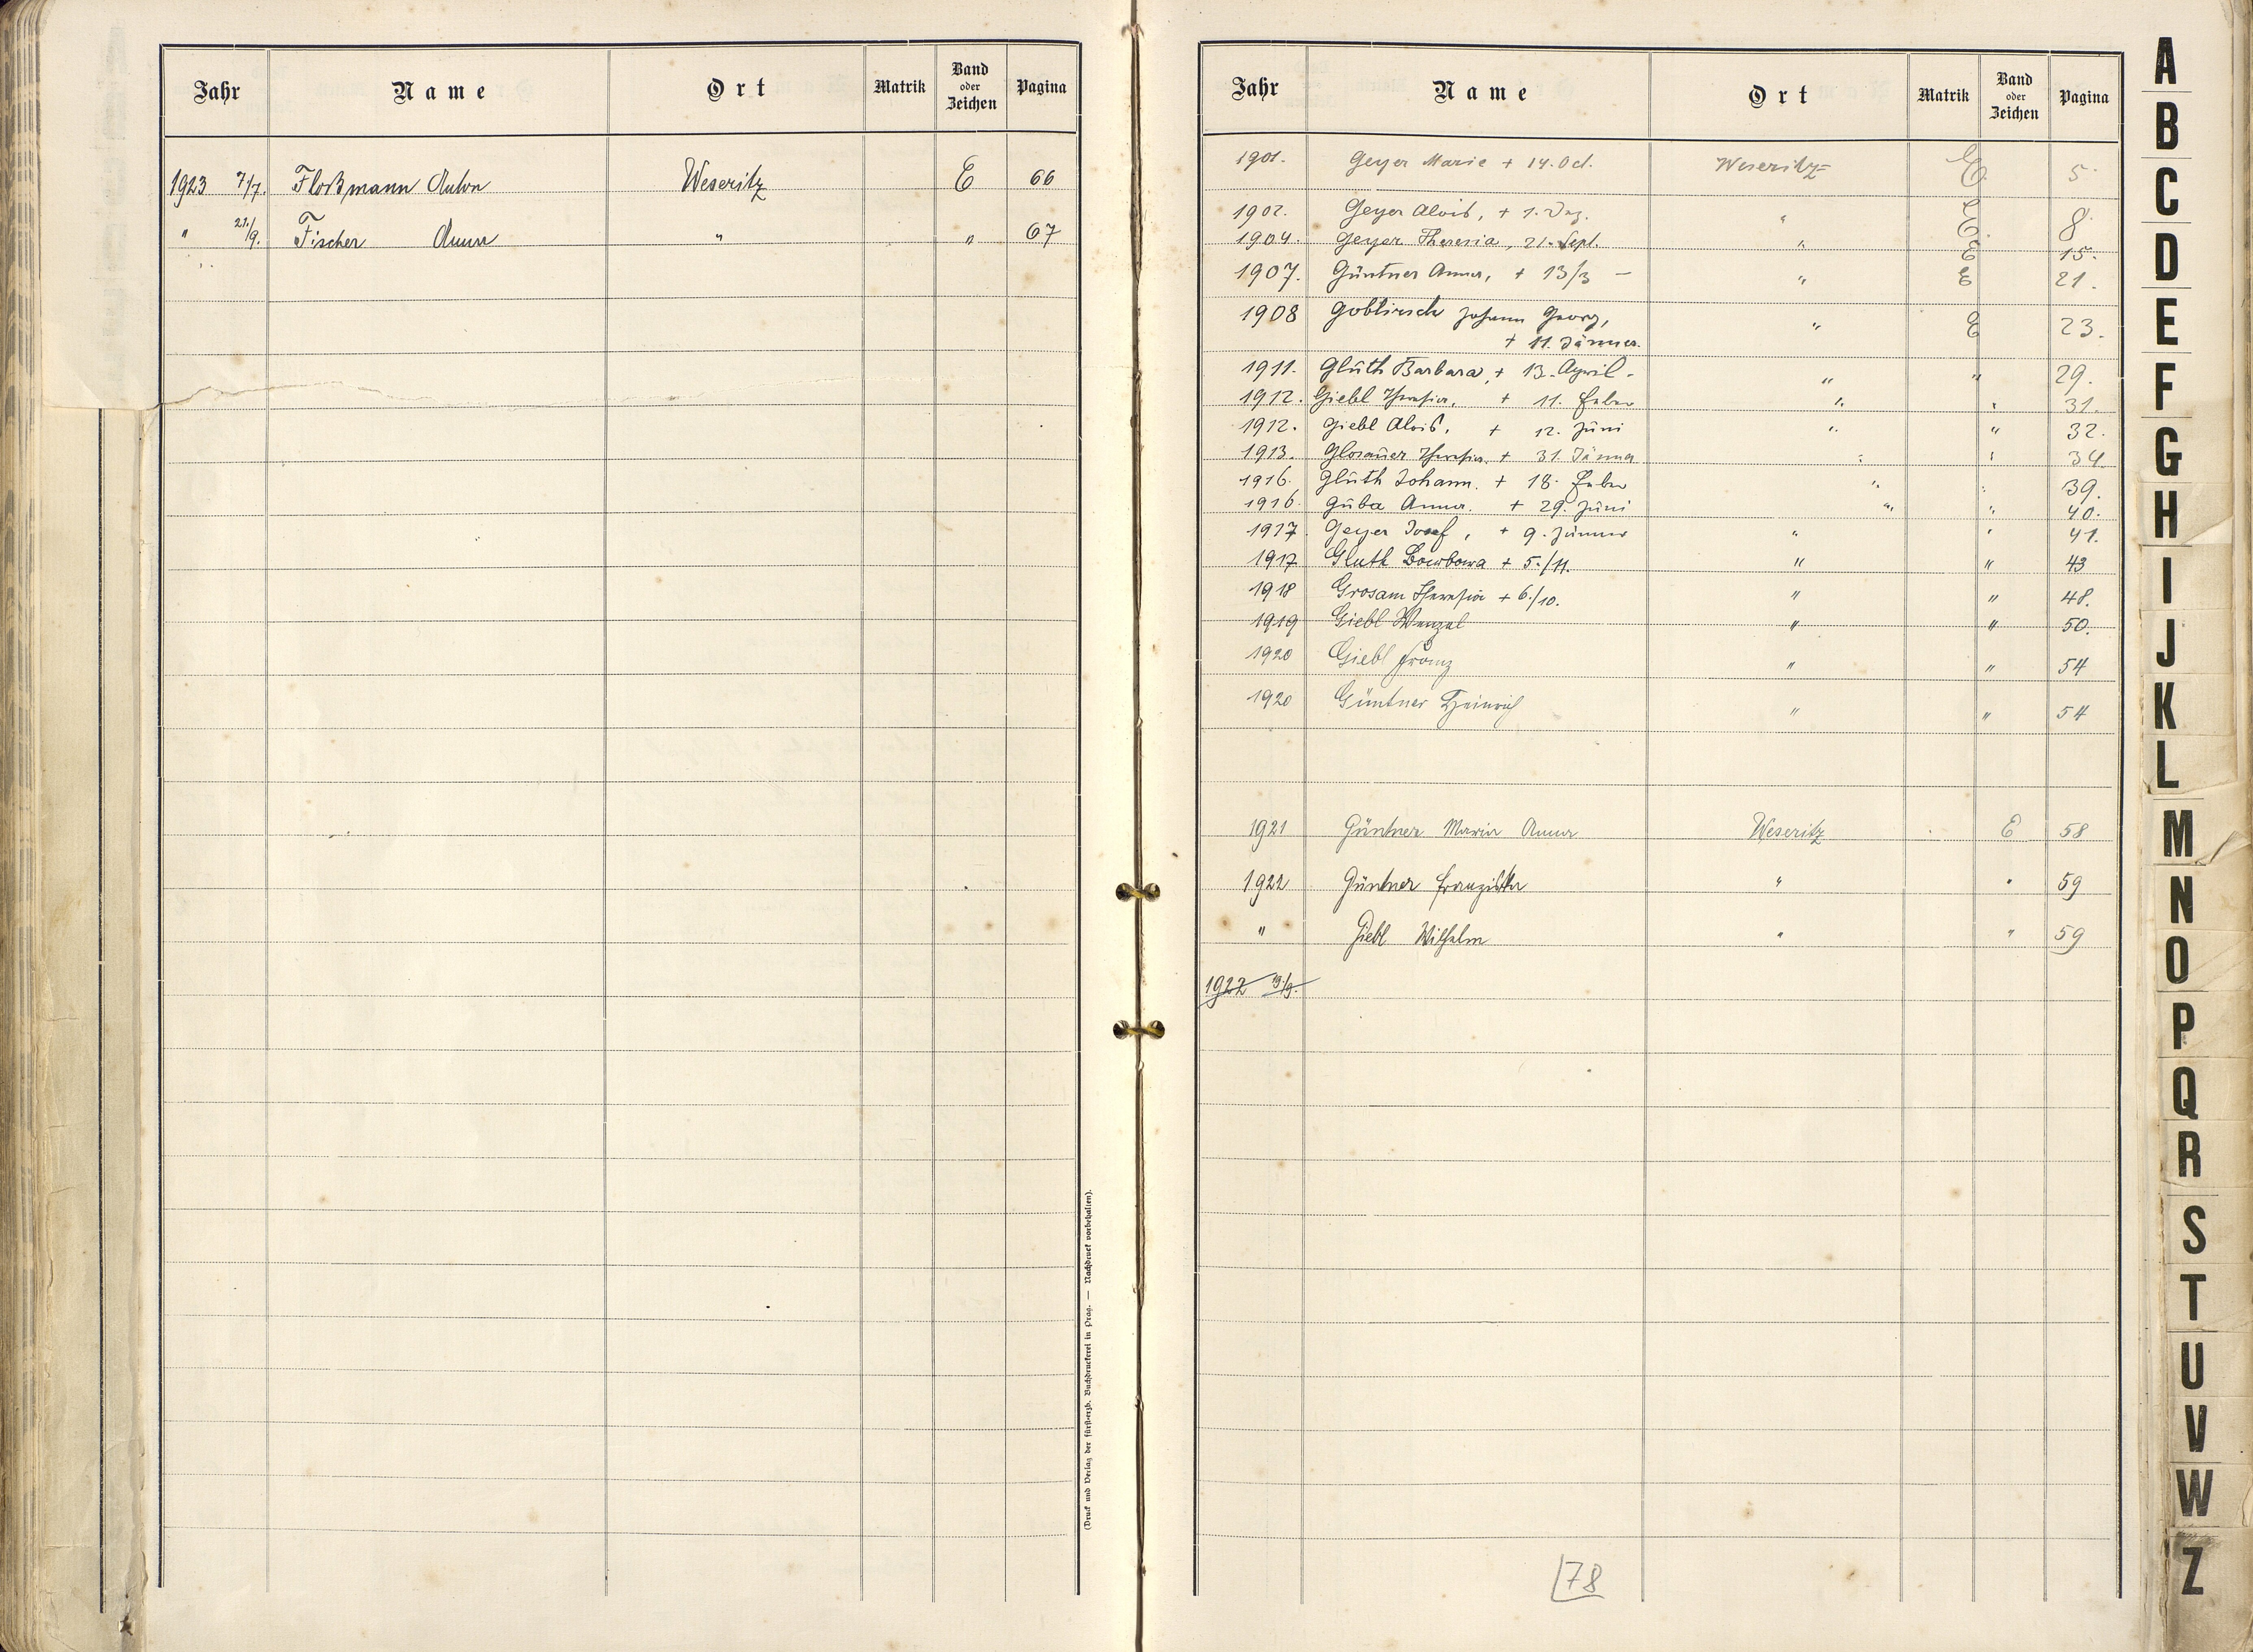 Jahr Name Ort Matrik Band oder Zeichen Pagina
1923 7/7. Floßmann Anton Weseritz E 66
" 21./9. Fischer Anna " " 67
(Druck und Verlag der fürst-erzb. Buchdruckerei in Prag. — Nachdruck vorbehalten).
Jahr Name Ort Matrik Band oder Zeichen Pagina
1901. Geyer Marie + 14. Oct. Weseritz= E. 5.
1902. Geyer Alois, + 1. Dez. " E. 8.
1904. Geyer Theresia, 21. Sept. " E 15.
1907. Güntner Anna, + 13/3 — " E 21.
1908 Goblirsch Johann Georg, " E 23.
+ 11. Jänner.
1911. Glüth Barbara, + 13. April. " " 29.
1912. Giebl Theresia, + 11. Feber " " 31.
1912. Giebl Alois, + 12. Juni " " 32.
1913. Glosauer Theresia. + 31. Jänner " " 34.
1916. Glüth Johann. + 18. Feber " " 39.
1916. Guba Anna. + 29. Juni " " 40.
1917. Geyer Josef, + 9. Jänner " " 41.
1917 Gluth Barbara + 5./11. " " 43
1918 Grosam Theresia + 6./10. " " 48.
1919 Giebl Wenzel " " 50.
1920 Giebl Franz " " 54
1920 Güntner Heinrich " " 54
1921 Güntner Maria Anna Weseritz E 58
1922 Güntner Franziska " " 59
" Giebl Wilhelm " " 59
1922
78
A
B
C
D
E
F
G
H
I
J
K
L
M
N
O
P
Q
R
S
T
U
V
W
Z